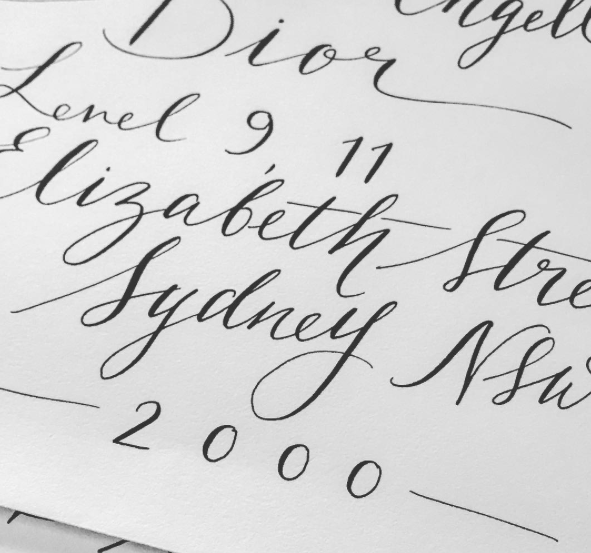 ngell
Dior
Level 9, 11
Elizabeth Stre
Sydney NSW
2000